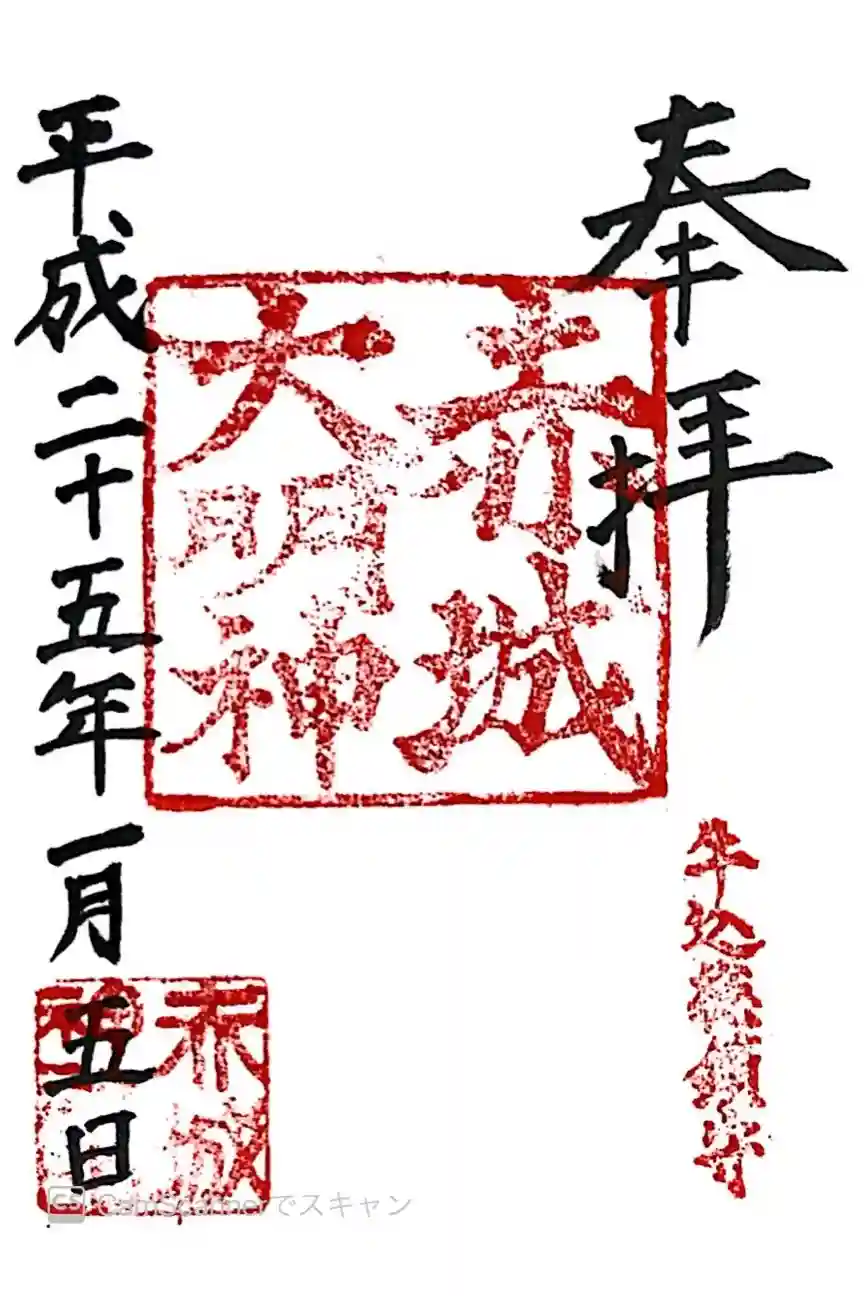 奉拝
赤城
大明神
牛込総鎮守
平成二十五年一月五日
赤城
CamScannerでスキャン